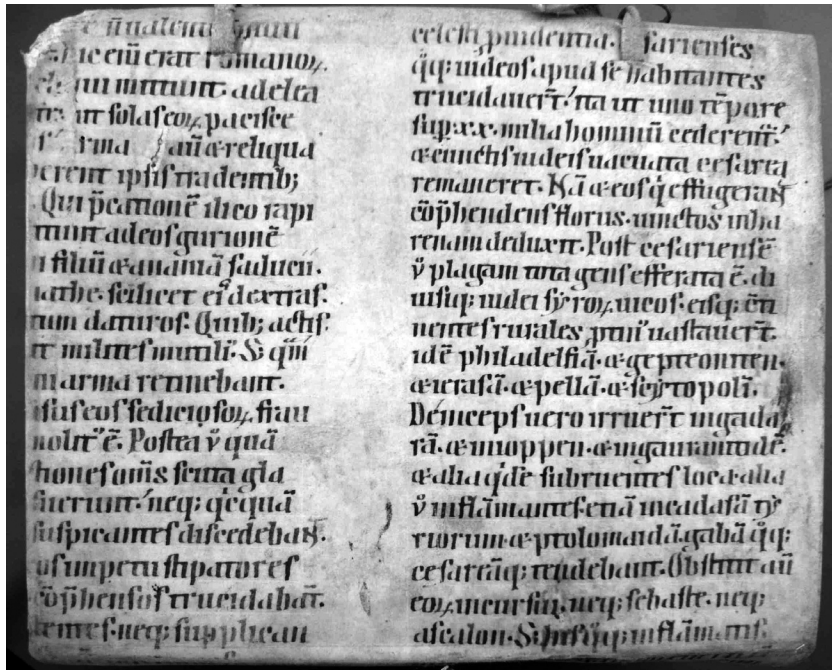 erat romanoꝝ.
mittunt. ad elea
solas eoꝝ pacisce
reliqua
ipsis tradentib;
Qui p̄cationē ilico rapi
unt ad eos gurionē
filiū & ananiā saducei.
scilicet ei' dextras.
daturos. Quib; actis.
milites mutili'. S;
arma retinebant.
suis eos sediciosoꝝ frau
molit' ē. Postea v̊ quā
om̄s scuta gla
neq; qicquā
suspicantes discedebant.
impetu stipatores
cōp̄hensos trucidabāt.
neq; supplican
celesti ꝓuidentia. sarienses
q̊q; iudeos apud se habitantes
trucidauer̄t. ita ut uno tēpore
sup .xx. milia hominū cederent'.
& cunctis iudeis uacuata cesarea
remaneret. Nā & eos qi effugerant
cōp̄hendens florus. uinctos in ha
renam deduxit. Post cesariensē
v̊ plagam tota gens efferata ē. di
uisiq; iudei syroꝝ uicos. eisq; cōti
nentes rurales ꝓtin' uastauer̄t.
idē philadelfiā. & gepteoniten.
& ierasā. & pellā. & scytopolī.
Deinceps uero irruer̄t in gada
rā. & in ioppen. & in gauranitidē.
& alia qidē subruentes loca. alia
v̊ inflāmantes. etiā in cadasā ty
riorum. & ptolomaidā. gabā q̊q;
cesareāq; tendebant. Obstitit aū
eoꝝ incursiū. neq; sebaste. neq;
ascalon. S; his q̊q; inflāmatis.